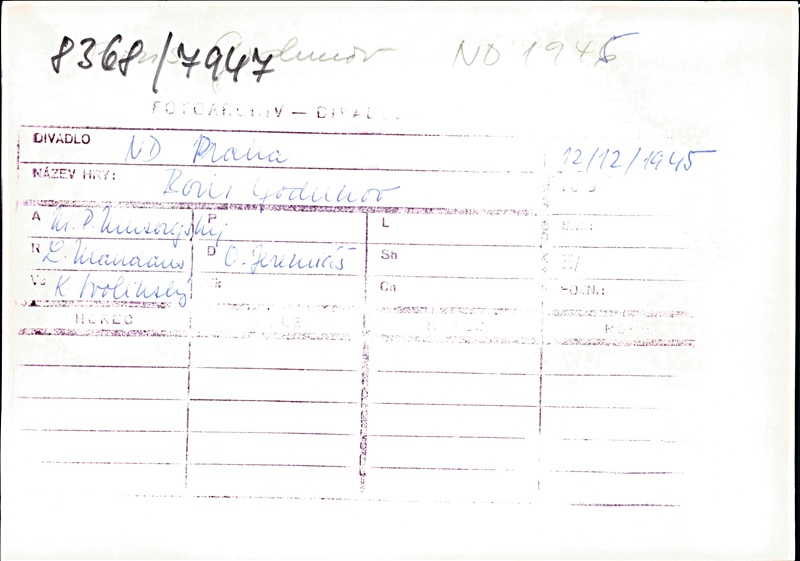 8368/7947 Godunov ND 1945
FOTOARCHIV — DIVADLO
DIVADLO ND Praha 12/12/1945
NÁZEV HRY: Boris Godunov
A M. P. Musorgskij P L
R L. Mandaus D O. Jeremiáš Sh
Vs K. Svolinský Ch
HEREC